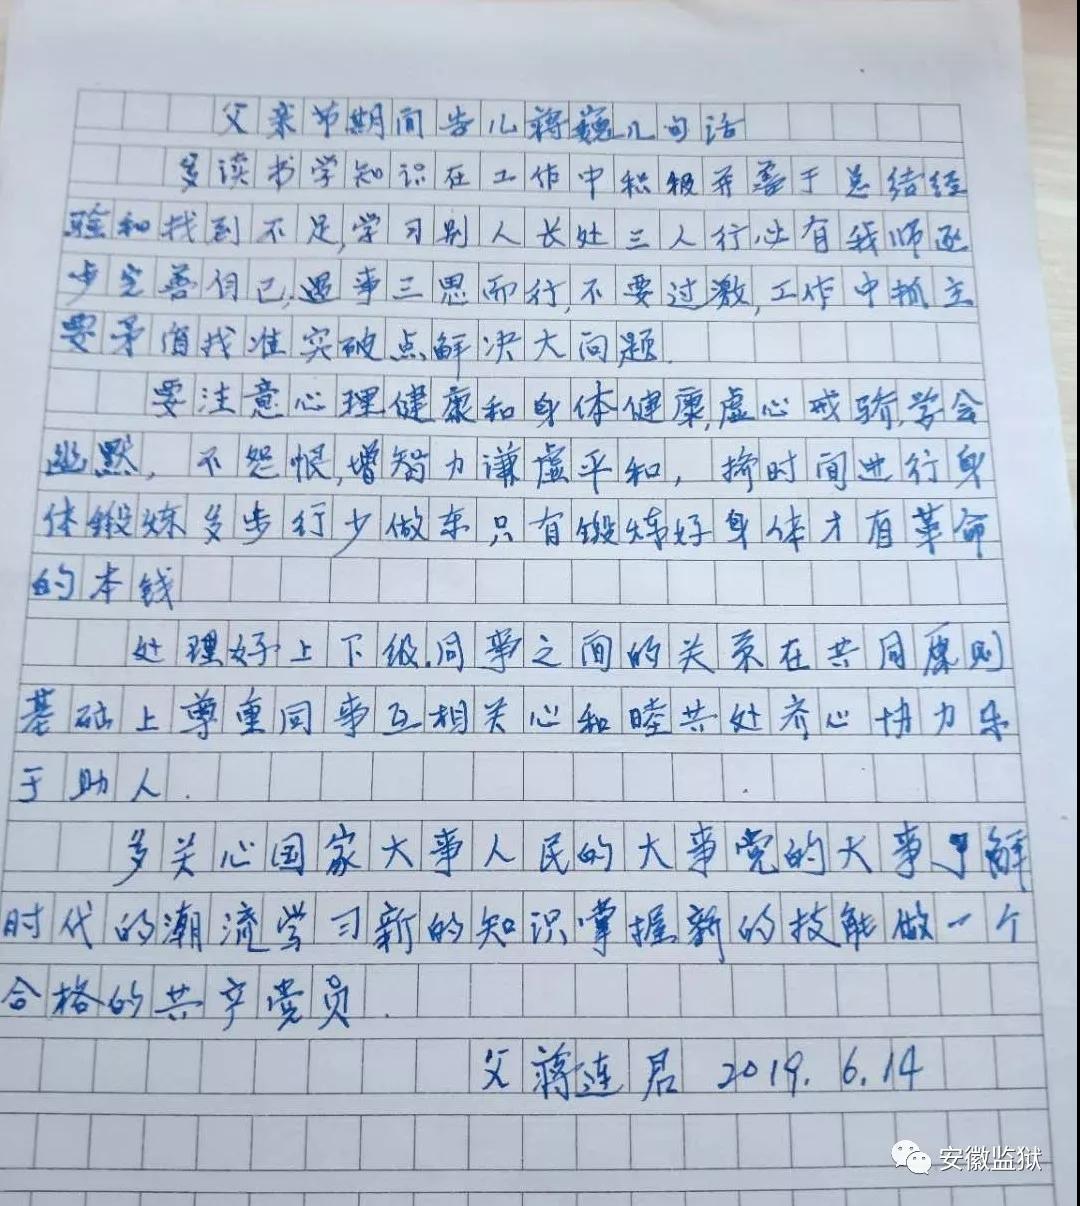 父亲节期间告儿蒋巍几句话
多读书学知识在工作中积极并善于总结经
验和找到不足,学习别人长处三人行必有我师逐
步完善自己,遇事三思而行,不要过激,工作中抓主
要矛盾找准突破点解决大问题.
要注意心理健康和身体健康,虚心戒骄,学会
幽默,不怨恨,增智力谦虚平和,挤时间进行身
体锻炼多步行少做车只有锻炼好身体才有革命
的本钱
处理好上下级.同事之间的关系在共同原则
基础上尊重同事互相关心和睦共处齐心协力乐
于助人.
多关心国家大事人民的大事党的大事了解
时代的潮流学习新的知识掌握新的技能做一个
合格的共产党员.
父蒋连君 2019.6.14
安徽监狱